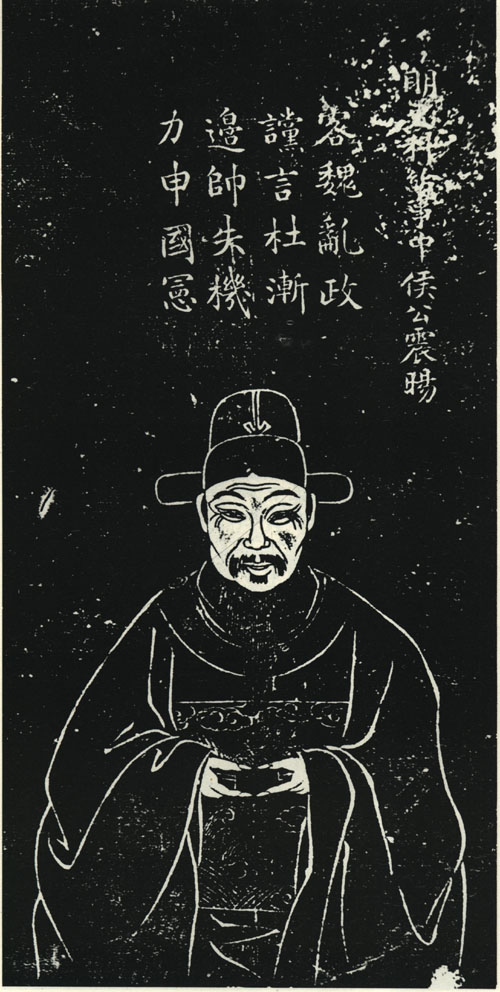 明吏科給事中侯公震暘
客魏亂政
讜言杜漸
邊帥失機
力申國憲